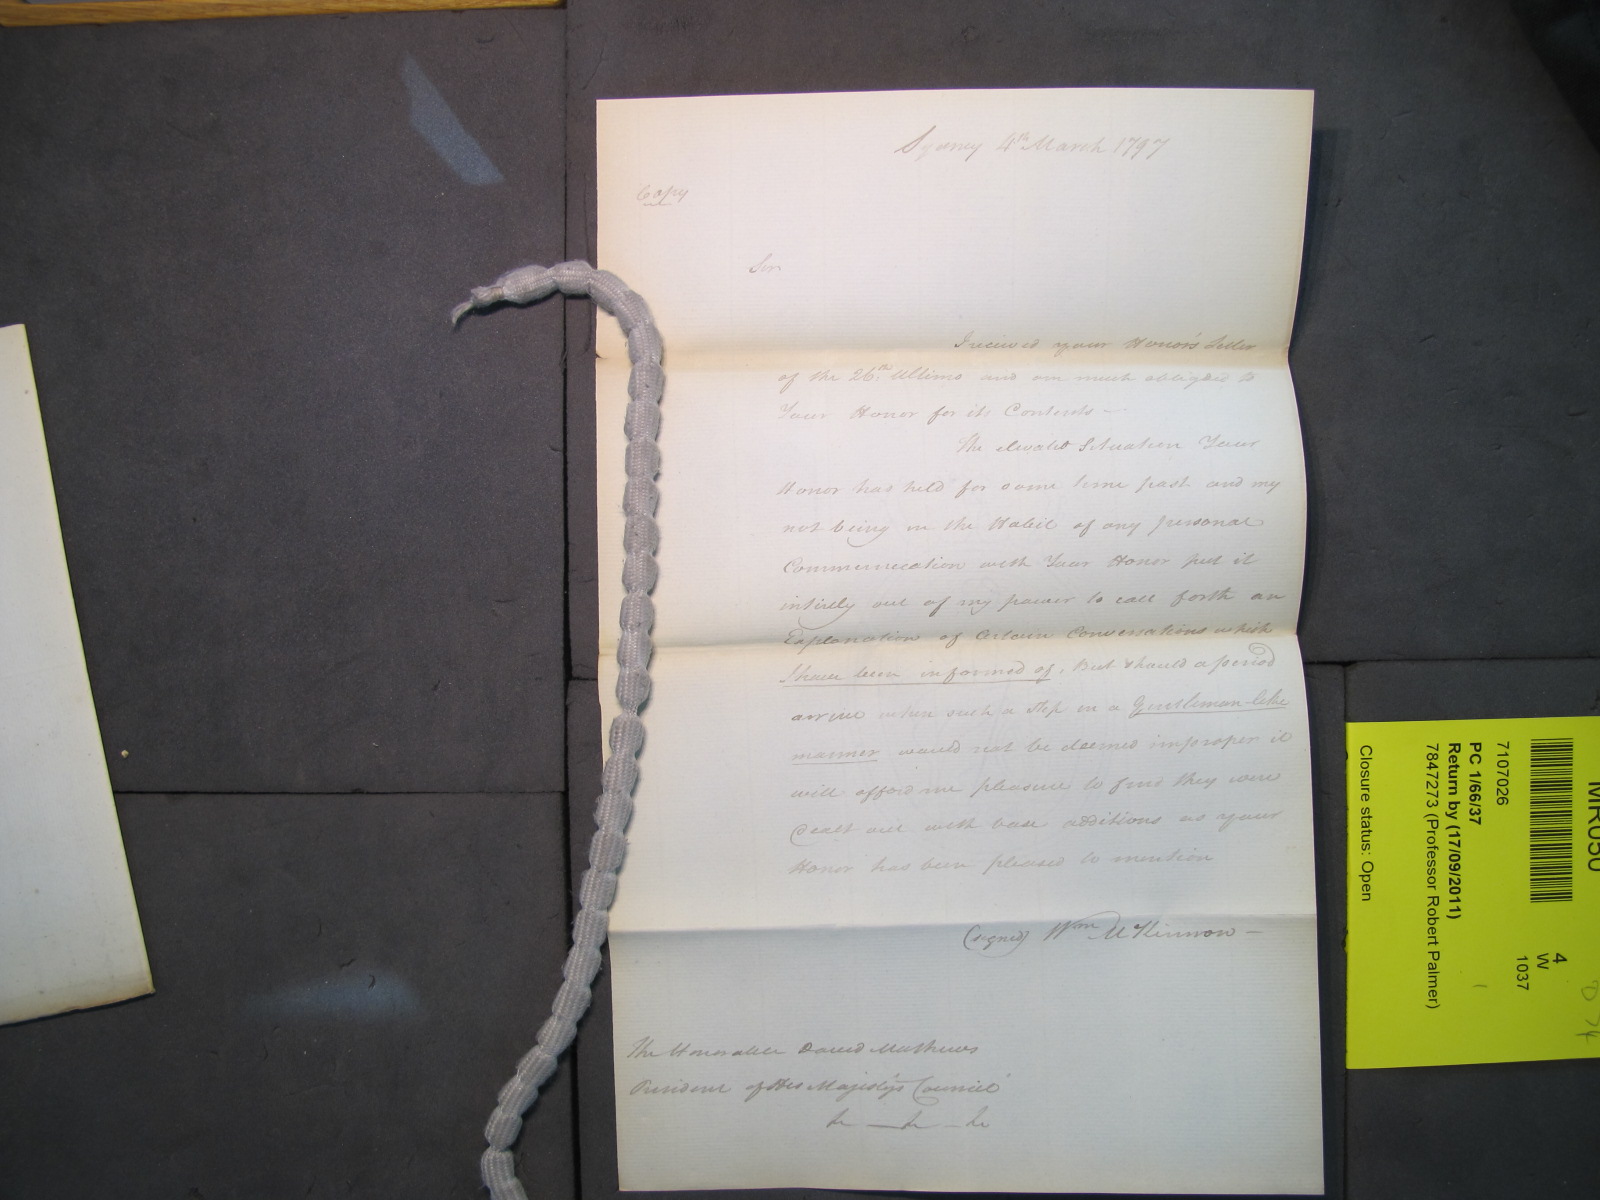 Sydney 4th March 1797
Copy
Sir
I received your Honor's Letter
of the 26th. Ultimo and am much obliged to
Your Honor for its Contents —
The elevated Situation Your
Honor has held for some time past and my
not being in the Habit of any personal
Communication with Your Honor put it
intirely out of my power to call forth an
Explanation of Certain Conversations which
I have been informed of, But should a period
arrive when such a step in a Gentleman-like
manner would not be deemed improper it
will afford me pleasure to find they were
dealt out with base additions as your
Honor has been pleased to mention
(signed) Wm McKinnon —
The Honorable David Mathews
President of His Majesty's Council
&c — &c — &c
MR050
4
W
1037
7107026
PC 1/66/37
Return by (17/09/2011)
7847273 (Professor Robert Palmer)
Closure status: Open